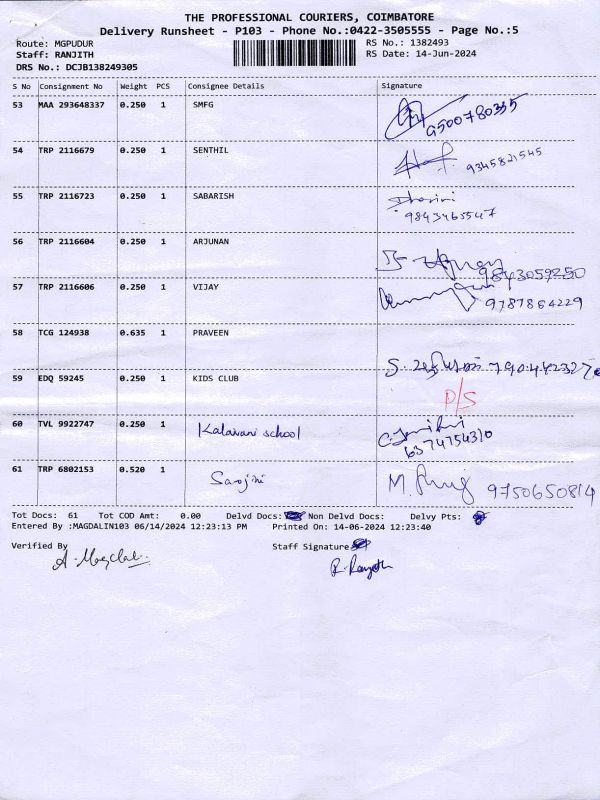 THE PROFESSIONAL COURIERS, COIMBATORE
Delivery Runsheet - P103 - Phone No.:0422-3505555 - Page No.:5
Route: MGPUDUR RS No.: 1382493
Staff: RANJITH RS Date: 14-Jun-2024
DRS No.: DCJB138249305
S No Consignment No Weight PCS Consignee Details Signature
53 MAA 293648337 0.250 1 SMFG
9500780355
54 TRP 2116679 0.250 1 SENTHIL
9345821545
55 TRP 2116723 0.250 1 SABARISH
9843465547
56 TRP 2116604 0.250 1 ARJUNAN
9843059250
57 TRP 2116606 0.250 1 VIJAY
9787864229
58 TCG 124938 0.635 1 PRAVEEN
59 EDQ 59245 0.250 1 KIDS CLUB
D/S
60 TVL 9922747 0.250 1 Kalaivani school
6374754310
61 TRP 6802153 0.520 1 Saojini
9750650814
Tot Docs: 61 Tot COD Amt: 0.00 Delvd Docs: Non Delvd Docs: Delvy Pts:
Entered By :MAGDALIN103 06/14/2024 12:23:13 PM Printed On: 14-06-2024 12:23:40
Verified By Staff Signature